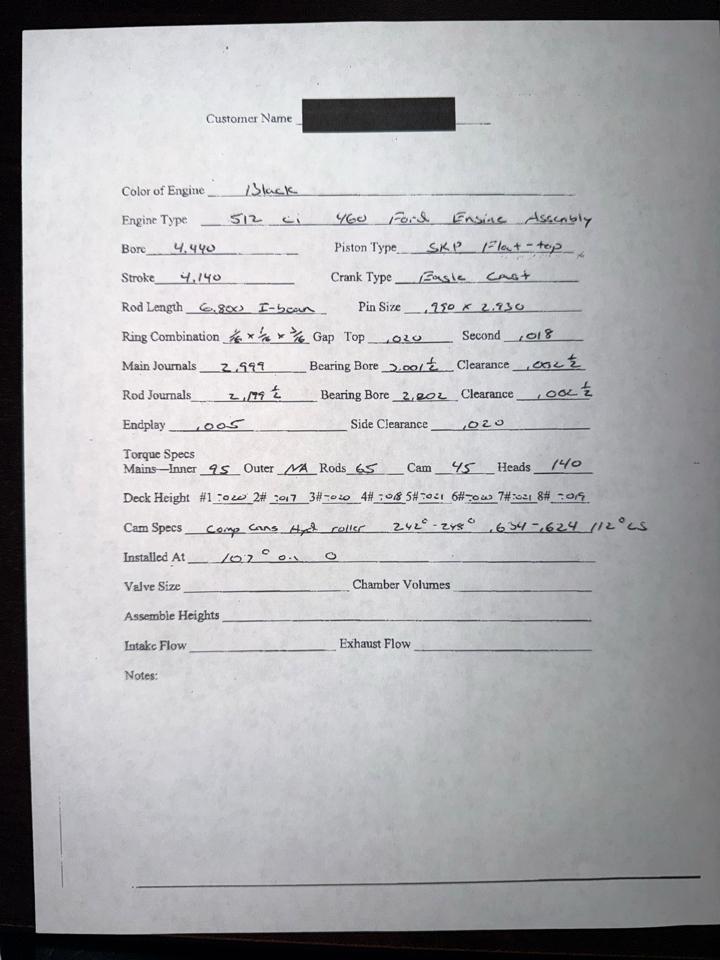 Customer Name
Color of Engine Black
Engine Type 512 ci 460 Ford Engine Assembly
Bore 4.440 Piston Type SRP Flat-top
Stroke 4.140 Crank Type Eagle Cast
Rod Length 6.800 I-beam Pin Size .990 x 2.930
Ring Combination 1/16 x 1/16 x 3/16 Gap Top .020 Second .018
Main Journals 2.999 Bearing Bore 3.001 1/2 Clearance .002 1/2
Rod Journals 2.199 1/2 Bearing Bore 2.202 Clearance .002 1/2
Endplay .005 Side Clearance .020
Torque Specs
Mains—Inner 95 Outer NA Rods 65 Cam 45 Heads 140
Deck Height #1 -.020 2# -.017 3# -.020 4# -.018 5# -.021 6# -.020 7# -.021 8# -.019
Cam Specs Comp Cams Hyd roller 242° - 248° .634 - .624 112° LS
Installed At 107° on 0
Valve Size Chamber Volumes
Assemble Heights
Intake Flow Exhaust Flow
Notes: